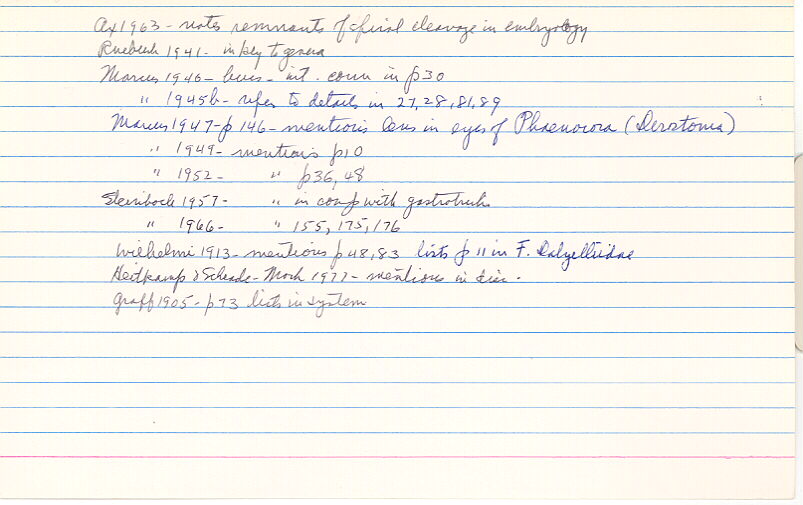 Ax 1963 - notes remnants of spiral cleavage in embryology
Ruebush 1941 - in key to genera
Marcus 1946 - - int. conn in p30
" 1945b - refer to details in 27, 28, 81, 89
Marcus 1947 - p 146 - mentions lens in eyes of Phaenocora (Derostoma)
" 1949 - mentions p10
" 1952 - " p36, 48
Steinbock 1957 - " in comp with gastrotrichs
" 1966 - " 155, 175, 176
Wilhelmi 1913 - mentions p 48, 83 lists p 11 in F. Dalyelliidae
Heitkamp & Schrade-Mock 1977 - mentions in
Graff 1905 - p73 lists in system